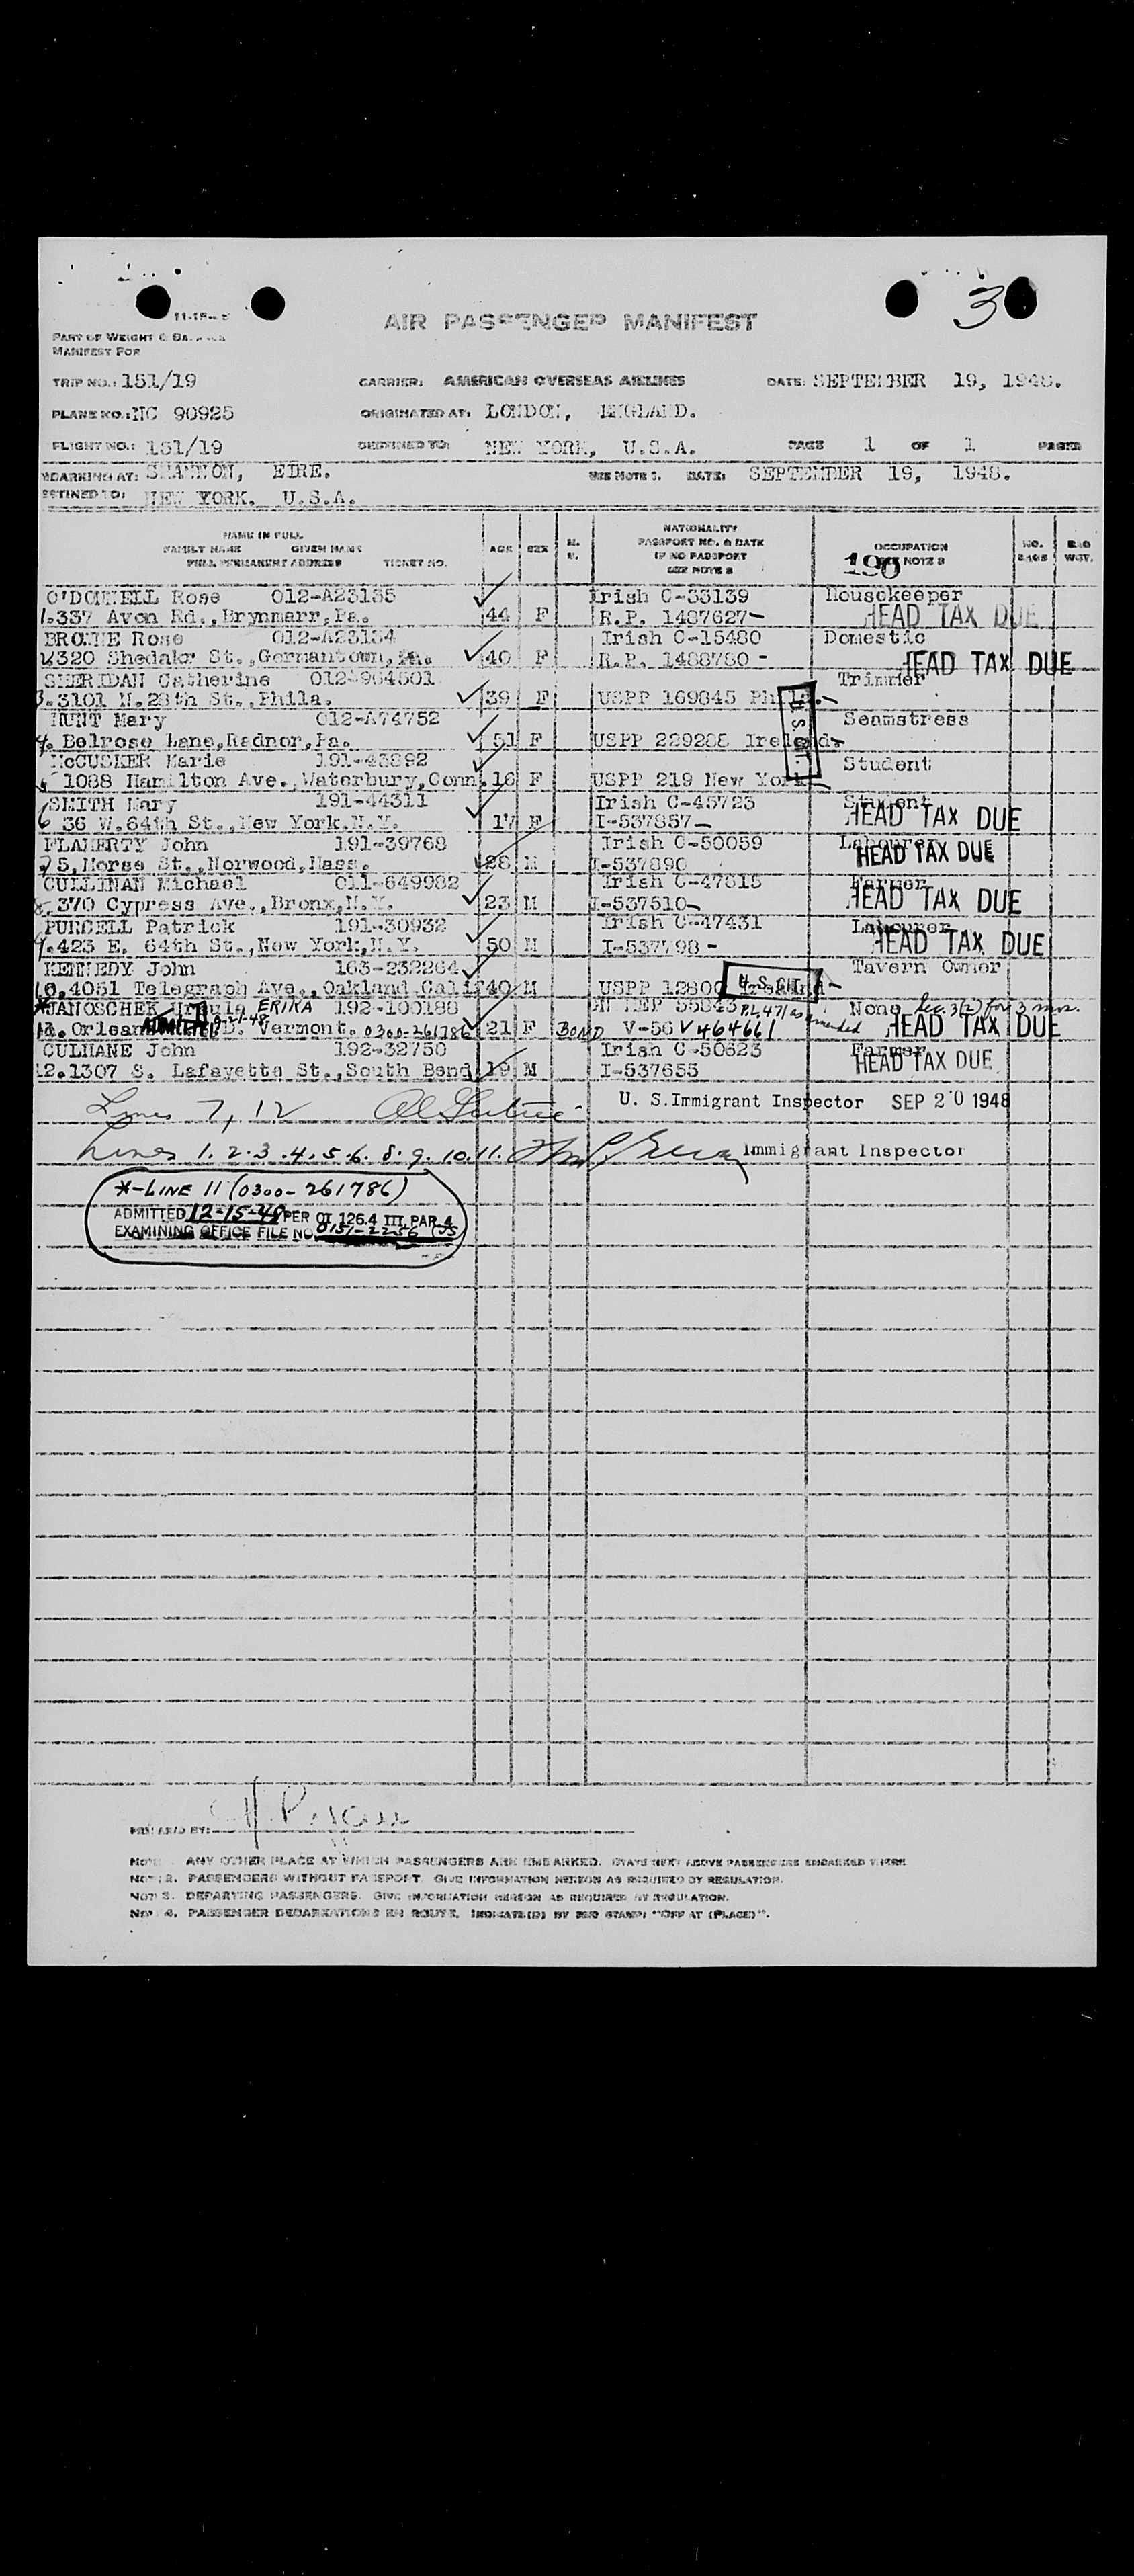 3
AIR PASSENGER MANIFEST
PART OF WEIGHT &
MANIFEST FOR
TRIP NO.: 151/19 CARRIER: AMERICAN OVERSEAS AIRLINES DATE: SEPTEMBER 19, 1948.
PLANE NO.: NC 90925 ORIGINATED AT: LONDON, ENGLAND.
FLIGHT NO.: 151/19 DESTINED TO: NEW YORK, U.S.A. PAGE 1 OF 1 PAGES
MBARKING AT: SHANNON, EIRE. SEE NOTE 1. DATE: SEPTEMBER 19, 1948.
ESTINED TO: NEW YORK. U.S.A.
NAME IN FULL
FAMILY NAME GIVEN NAME
FULL PERMANENT ADDRESS TICKET NO.
AGE SEX
NATIONALITY
PASSPORT NO. & DATE
IF NO PASSPORT
SEE NOTE 2
OCCUPATION
NOTE 3
190
NO. BAGS
BAG WGT.
O'DONNELL Rose 012-A23135 Irish C-33139 Housekeeper
1.337 Avon Rd.,Brynmarr,Pa. 44 F R.P. 1487627- HEAD TAX DUE
BROWNE Rose 012-A23134 Irish C-15480 Domestic
320 Shedakr St.,Germantown,Pa. 40 F R.P. 1488780 - HEAD TAX DUE
SHERIDAN Catherine 012-964501 Trimmer
3.3101 N.28th St.,Phila. 39 F USPP 169845 Phila.
HUNT Mary 012-A74752 Seamstress
4. Belrose Lane,Radnor,Pa. 51 F USPP 239288 Ireland-
McCUSKER Marie 191-43892 Student
1088 Hamilton Ave.,Waterbury,Conn. 16 F USPP 219 New York
U.S.CIT.
SMITH Mary 191-44311 Irish C-45723 Student
6 36 W.64th St.,New York.N.Y. 17 F I-537857- HEAD TAX DUE
FLAHERTY John 191-39768 Irish C-50059 Labourer
7 5,Morse St.,Norwood,Mass. 28 M I-537890 HEAD TAX DUE
CULLINAN Michael 011-649982 Irish C-47815 Farmer
8.370 Cypress Ave.,Bronx,N.Y. 23 M I-537510- HEAD TAX DUE
PURCELL Patrick 191-30932 Irish C-47431 Labourer
9.423 E. 64th St.,New York,N.Y. 50 M I-537798 - HEAD TAX DUE
KENNEDY John 163-232264 Tavern Owner
10.4051 Telegraph Ave.,Oakland Calif 40 M USPP 12800 Ireland - U.S.CIT.
*JANOSCHEK ERIKA 192-100188 P.L.471 as amended None Sec. 3(2) for 3 mos.
11. Orleans Vermont. 0300-261786 21 F BOND V-56 V464661 HEAD TAX DUE
CULHANE John 192-32750 Irish C-50623 Farmer
12.1307 S. Lafayette St.,South Bend 19 M I-537655 HEAD TAX DUE
Lines 7, 12 U. S.Immigrant Inspector SEP 20 1948
Lines 1.2.3.4.5.6.8.9.10.11. Immigrant Inspector
*-LINE 11 (0300-261786)
ADMITTED 12-15-48 PER OI 126.4 III PAR 4
EXAMINING OFFICE FILE NO. 0151-2256
PREPARED BY:
NOTE ANY OTHER PLACE AT WHICH PASSENGERS ARE EMBARKED. STATE NEXT ABOVE PASSENGERS EMBARKED THERE.
NOTE 2. PASSENGERS WITHOUT PASSPORT GIVE INFORMATION HEREON AS REQUIRED BY REGULATION.
NOTE 3. DEPARTING PASSENGERS. GIVE INFORMATION HEREON AS REQUIRED BY REGULATION.
NOTE 4. PASSENGER DEBARKATIONS EN ROUTE. INDICATE(D) BY RED STAMP: "OFF AT (PLACE)".